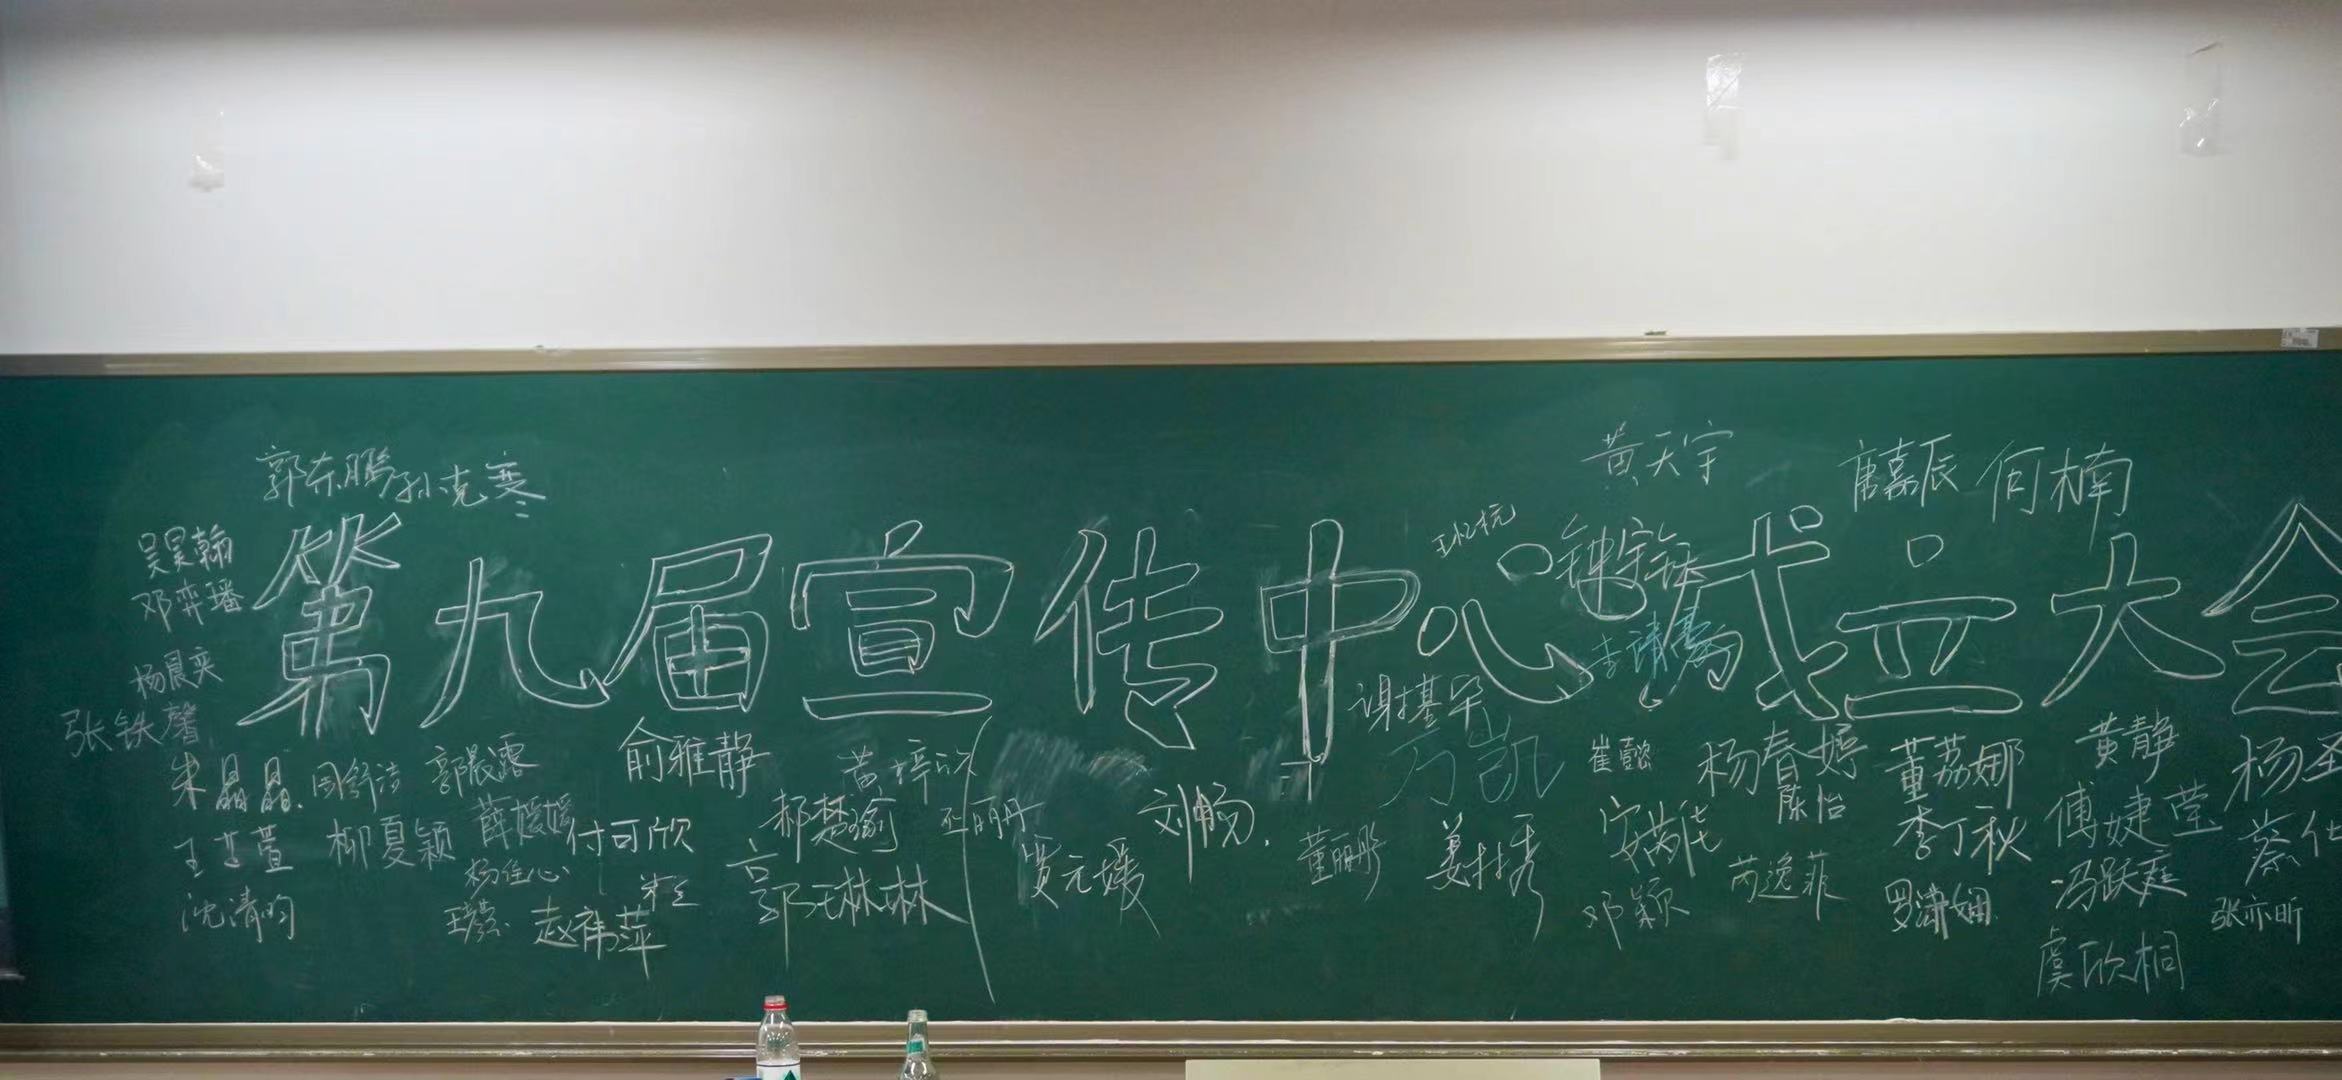 郭东鹏 孙克寒
黄天宇
唐嘉辰 何楠
吴昊翰
邓弈璠
杨晨奕
张铁馨
第九届宣传中心成立大会
钟宇钰
李靖骞
谢基
万凯
朱晶晶
周舒洁
郭晨露
俞雅静
黄梓欣
崔懿
杨春婷
董荔娜
黄静
杨圣
王艺萱
柳夏颖
薛媛媛
付可欣
郝楚瑜
丽丹
刘畅
陈怡
李丁秋
傅婕莹
蔡仕
沈清昀
杨佳心
赵祎萍
郭琳琳
贾元媛
董丽彤
姜秀
安芮
邓颖
芮逸菲
罗潇姗
冯跃庭
张亦昕
虞欣桐